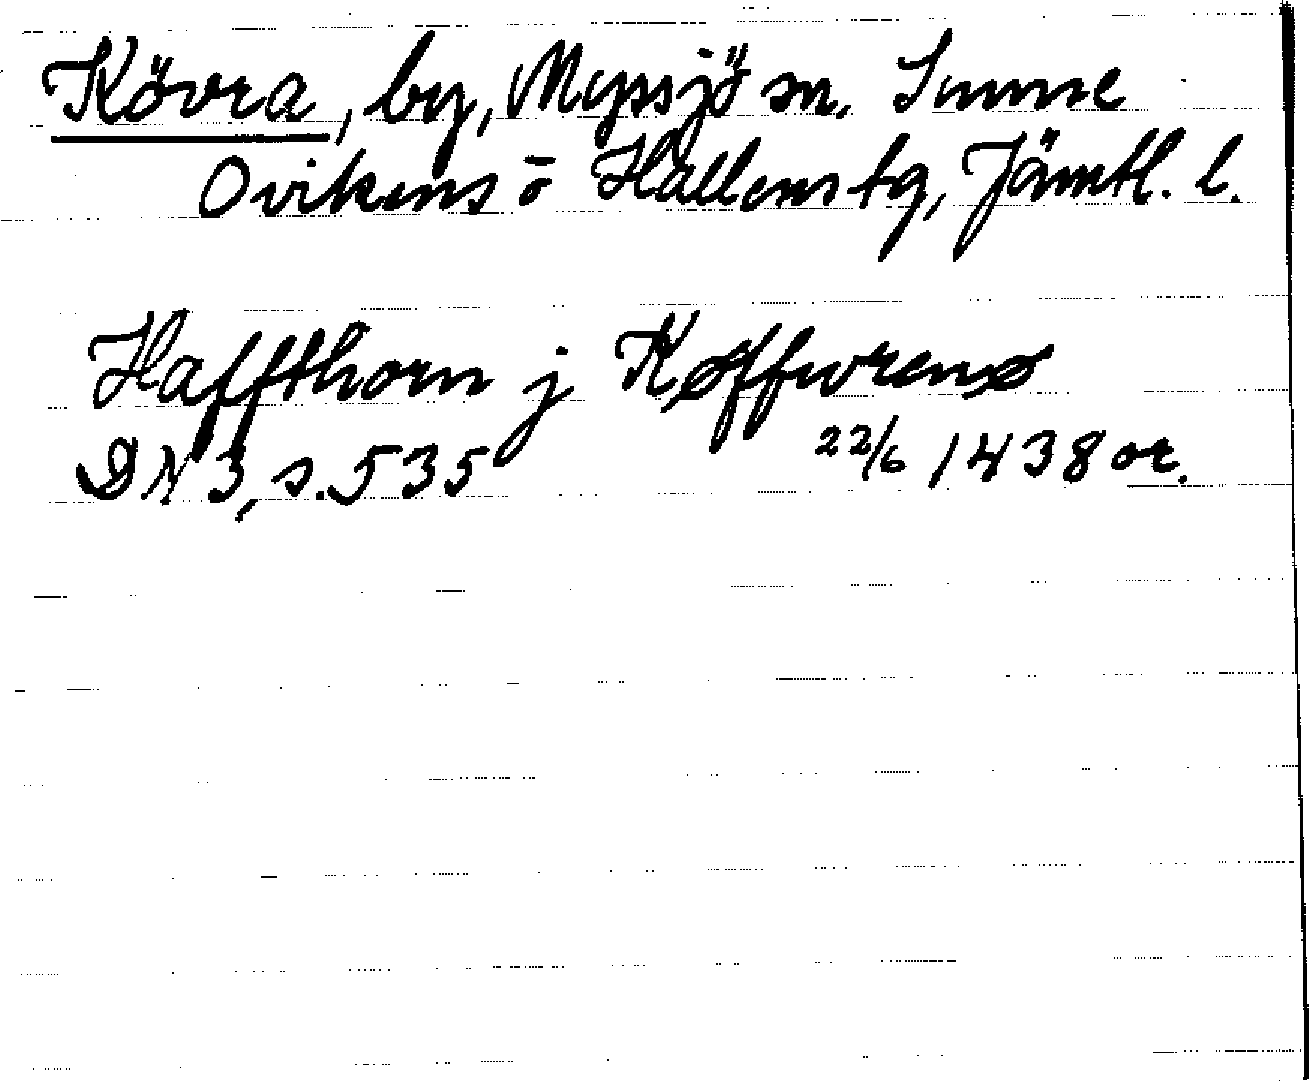 Kövra, by, Myssjö sn. Sunne
Ovikens o Hallens tg, Jämtl. l.
Haffthorn j Køffwrenø
DN 3, s. 535 22/6 1438 or.